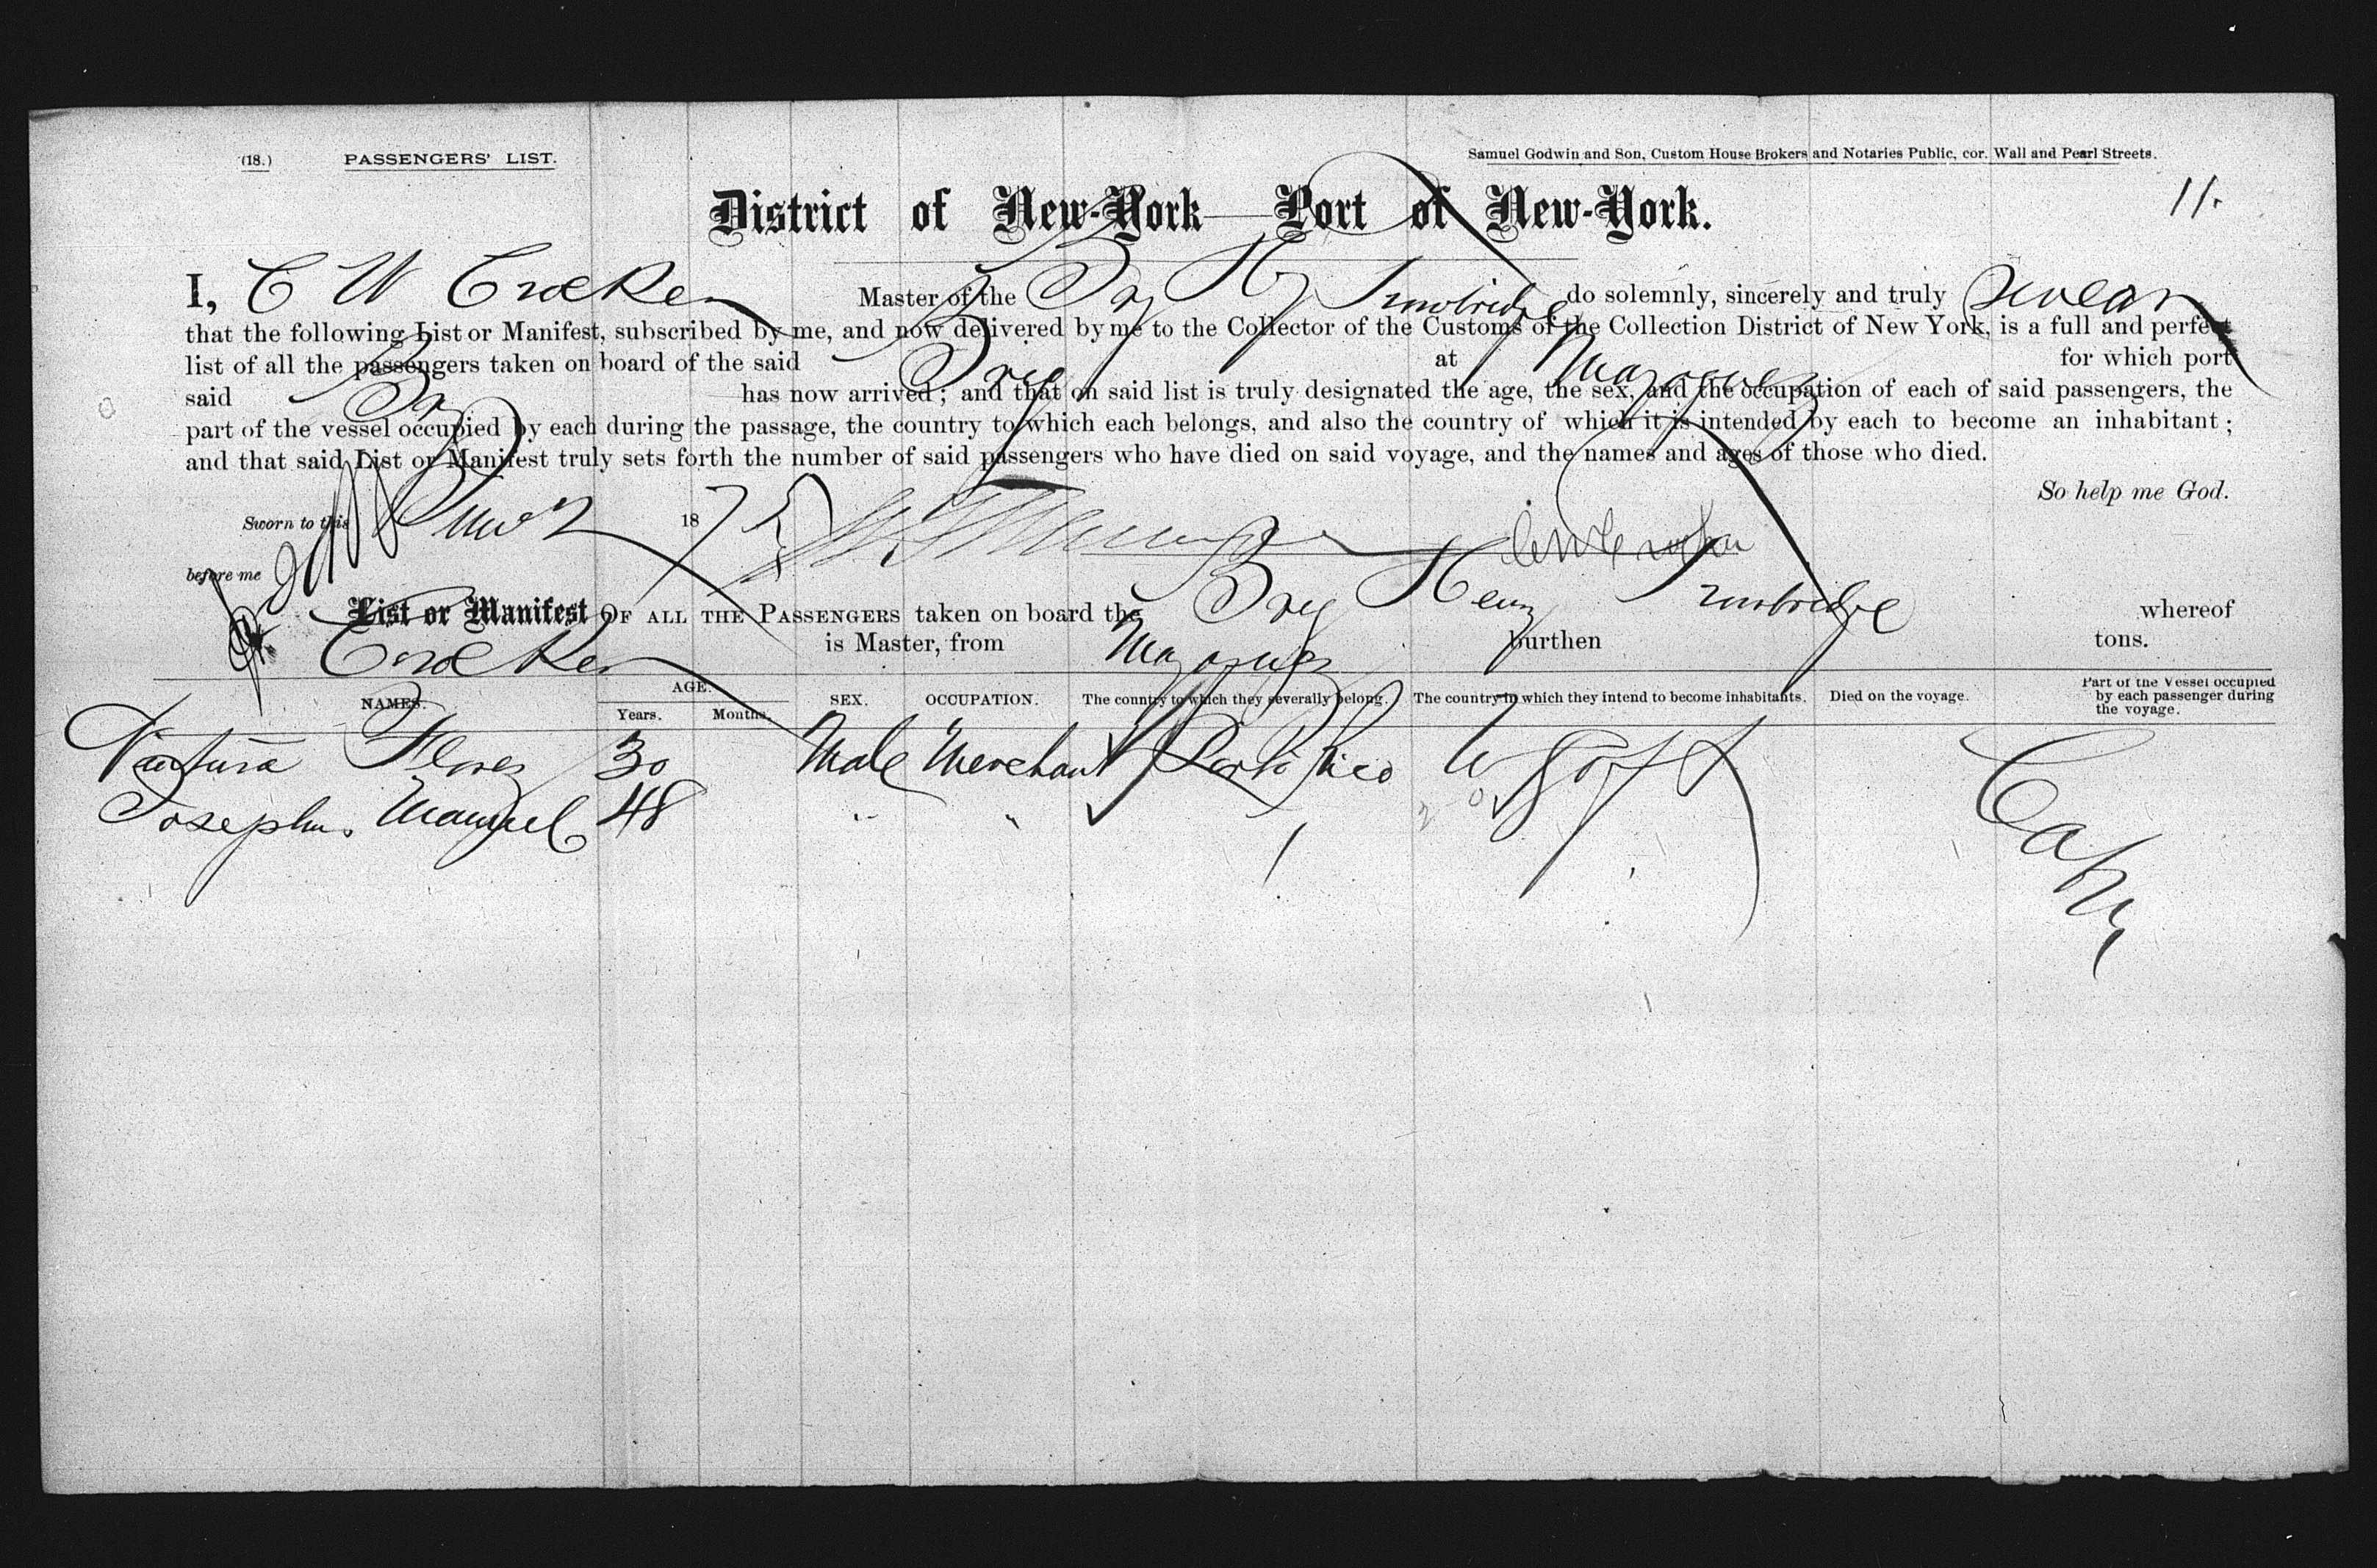 (18.) PASSENGERS' LIST. Samuel Godwin and Son, Custom House Brokers and Notaries Public, cor. Wall and Pearl Streets.
11.
District of New-York—Port of New-York.
I, C W Crocker Master of the Brig Hy Trowbridge do solemnly, sincerely and truly swear
that the following List or Manifest, subscribed by me, and now delivered by me to the Collector of the Customs of the Collection District of New York, is a full and perfect
list of all the passengers taken on board of the said Brig at Mayaguez for which port
said Brig has now arrived; and that on said list is truly designated the age, the sex, and the occupation of each of said passengers, the
part of the vessel occupied by each during the passage, the country to which each belongs, and also the country of which it is intended by each to become an inhabitant;
and that said List or Manifest truly sets forth the number of said passengers who have died on said voyage, and the names and ages of those who died.
So help me God.
Sworn to this June 187
before me
List or Manifest OF ALL THE PASSENGERS taken on board the Brig Henry Trowbridge whereof
Crocker is Master, from Mayaguez burthen tons.
NAMES. AGE. Years. Months. SEX. OCCUPATION. The country to which they severally belong. The country in which they intend to become inhabitants. Died on the voyage. Part of the Vessel occupied by each passenger during the voyage.
Flores 30 Male Merchant Porto Rico
Manuel 48 " "